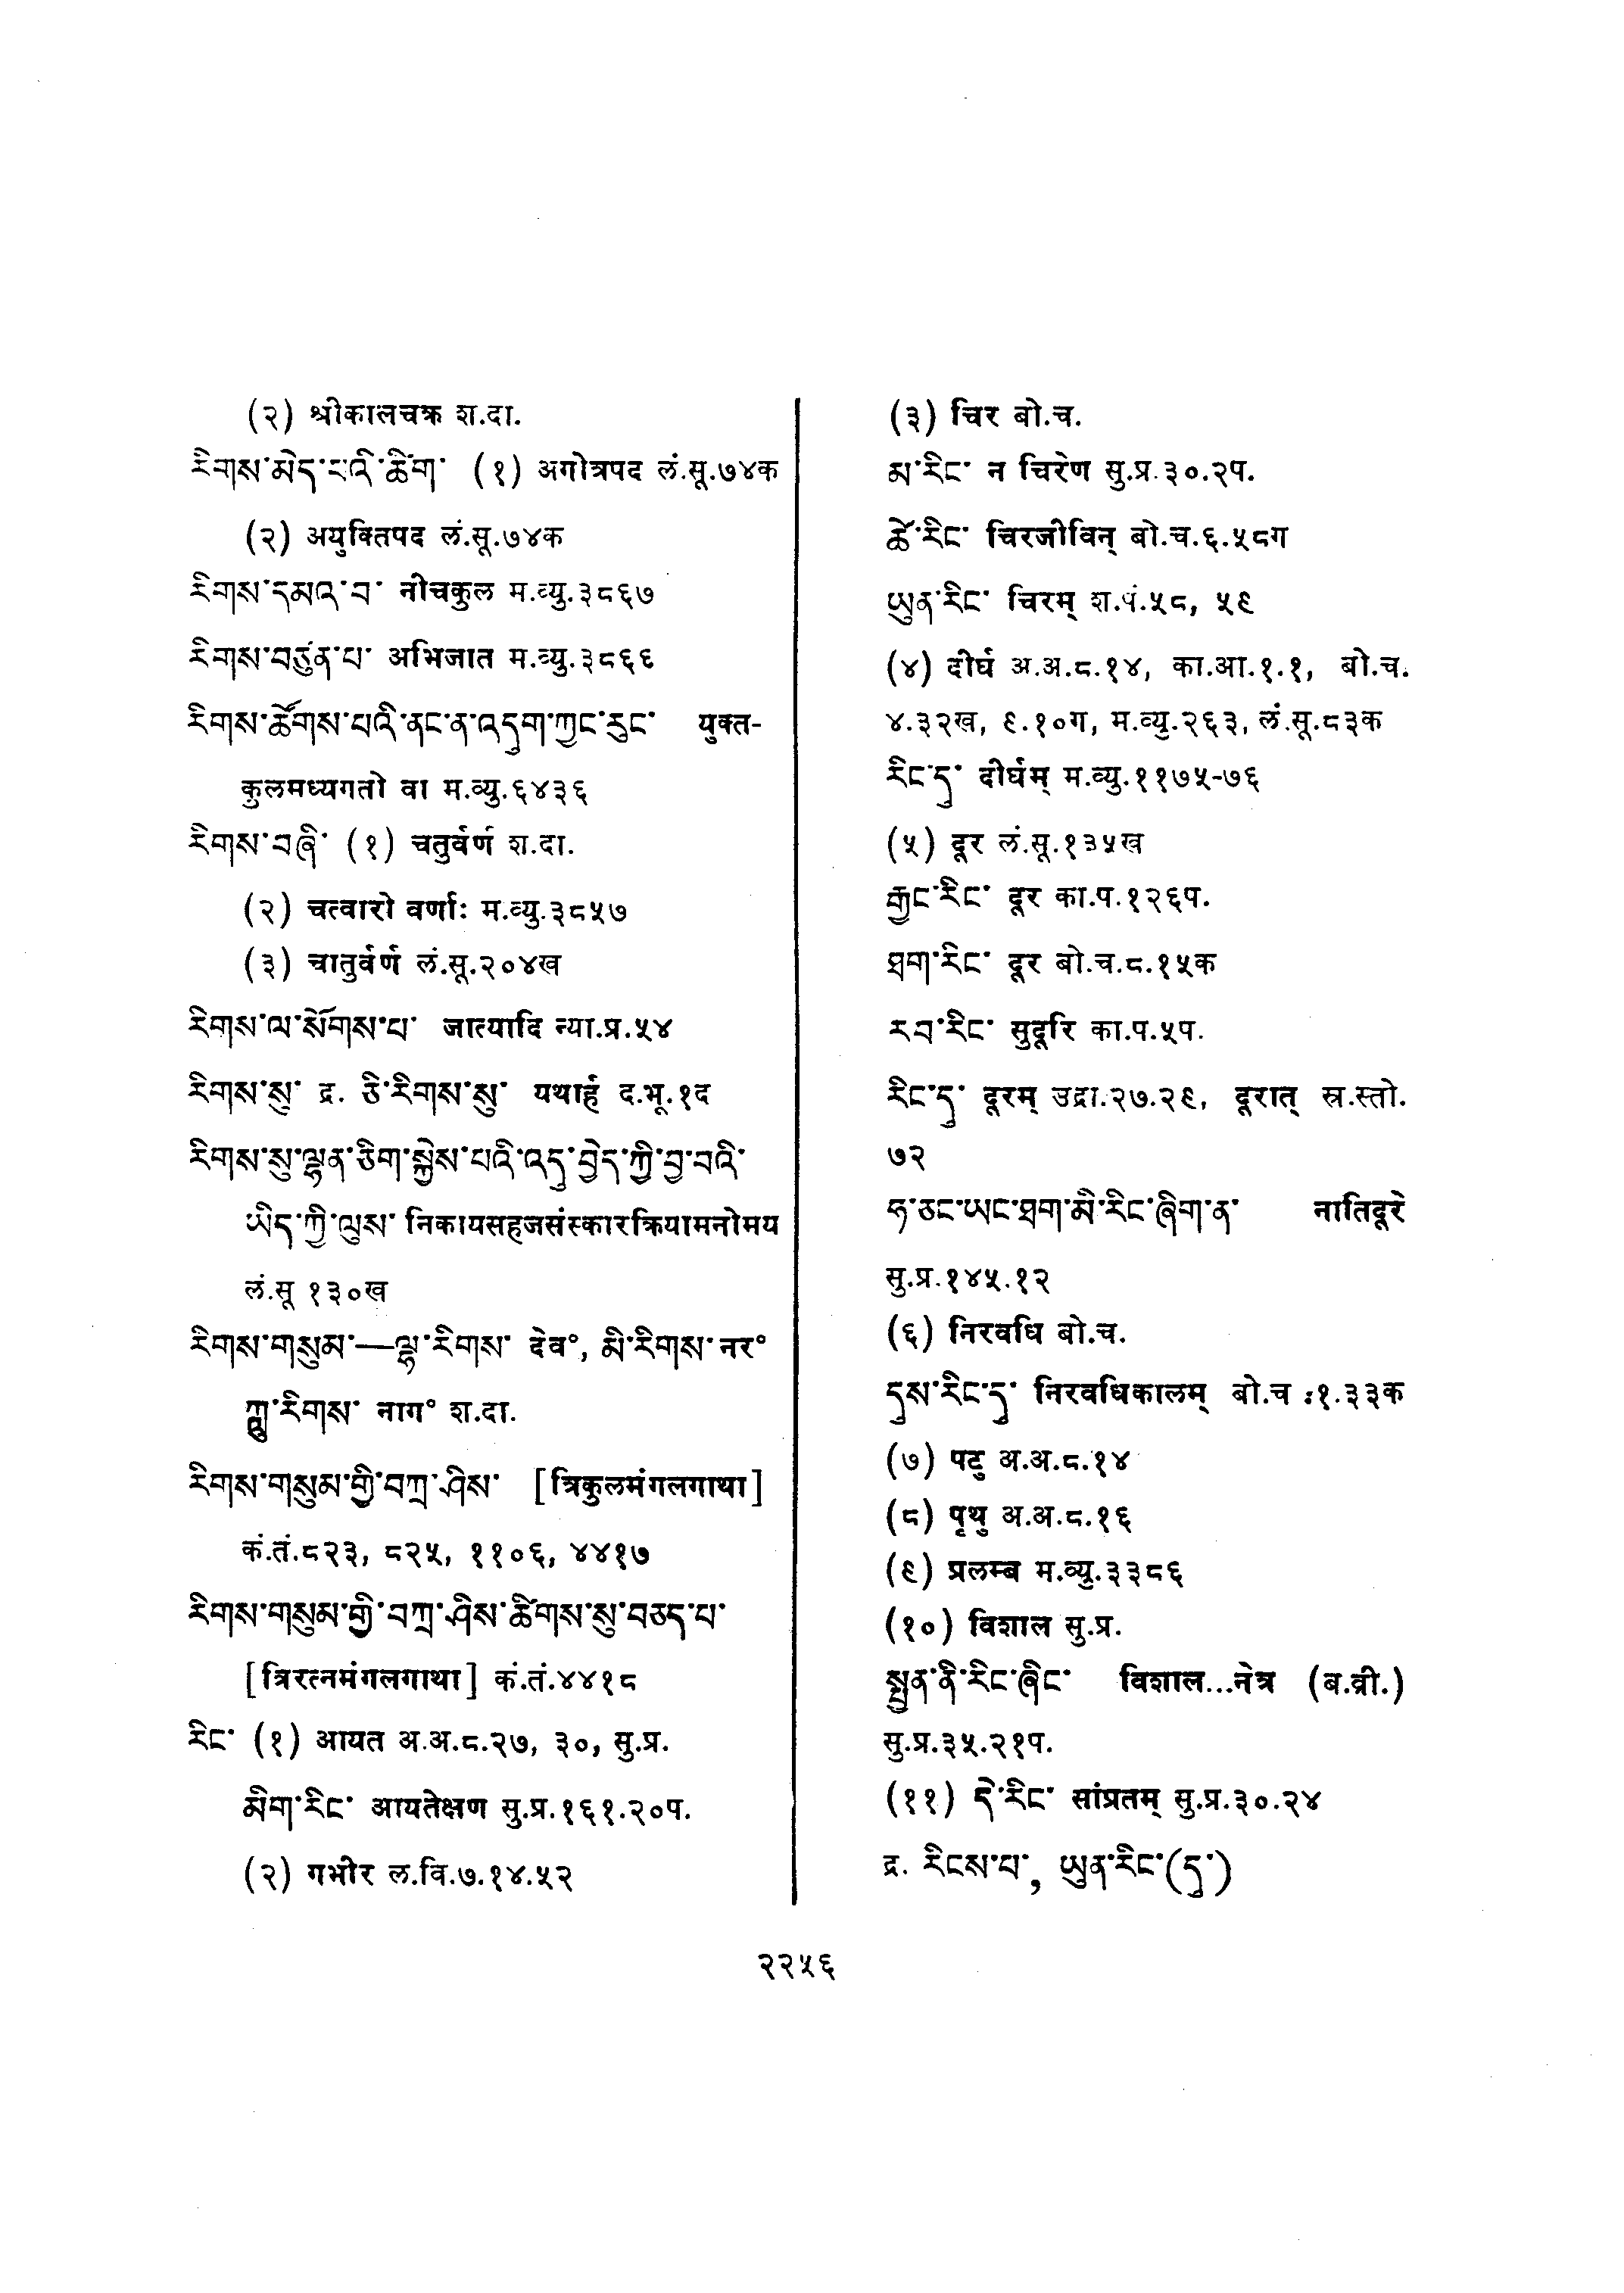 (२) श्रीकालचक्र श.दा.
རིགས་མེད་པའི་ཚིག་ (१) अगोत्रपद लं.सू.७४क
(२) अयुक्तिपद लं.सू.७४क
རིགས་དམའ་བ་ नीचकुल म.व्यु.३८६७
རིགས་བཙུན་པ་ अभिजात म.व्यु.३८६६
རིགས་ཚོགས་པའི་ནང་ན་འདུག་ཀྱང་རུང་ युक्त-
कुलमध्यगतो वा म.व्यु.६४३६
རིགས་བཞི་ (१) चतुर्वर्ण श.दा.
(२) चत्वारो वर्णाः म.व्यु.३८५७
(३) चातुर्वर्ण लं.सू.२०४ख
རིགས་ལ་སོགས་པ་ जात्यादि न्या.प्र.५४
རིགས་སུ་ द्र. ཅི་རིགས་སུ་ यथार्ह द.भू.१द
རིགས་སུ་ལྷན་ཅིག་སྐྱེས་པའི་འདུ་བྱེད་ཀྱི་བྱ་བའི་
ཡིད་ཀྱི་ལུས་ निकायसहजसंस्कारक्रियामनोमय
लं.सू १३०ख
རིགས་གསུམ་—ལྷ་རིགས་ देव°, མི་རིགས་ नर°
ཀླུ་རིགས་ नाग° श.दा.
རིགས་གསུམ་གྱི་བཀྲ་ཤིས་ [त्रिकुलमंगलगाथा]
कं.तं.८२३, ८२५, ११०६, ४४१७
རིགས་གསུམ་གྱི་བཀྲ་ཤིས་ཚིགས་སུ་བཅད་པ་
[त्रिरत्नमंगलगाथा] कं.तं.४४१८
རིང་ (१) आयत अ.अ.८.२७, ३०, सु.प्र.
མིག་རིང་ आयतेक्षण सु.प्र.१६१.२०प.
(२) गभीर ल.वि.७.१४.५२
(३) चिर बो.च.
མ་རིང་ न चिरेण सु.प्र.३०.२प.
ཚེ་རིང་ चिरजीविन् बो.च.६.५८ग
ཡུན་རིང་ चिरम् श.पं.५८, ५९
(४) दीर्घ अ.अ.८.१४, का.आ.१.१, बो.च.
४.३२ख, ९.१०ग, म.व्यु.२६३, लं.सू.८३क
རིང་དུ་ दीर्घम् म.व्यु.११७५-७६
(५) दूर लं.सू.१३५ख
རྒྱང་རིང་ दूर का.प.१२६प.
ཐག་རིང་ दूर बो.च.८.१५क
རབ་རིང་ सुदूरि का.प.५प.
རིང་དུ་ दूरम् उद्रा.२७.२९, दूरात् स्र.स्तो.
७२
ཧ་ཅང་ཡང་ཐག་མི་རིང་ཞིག་ན་ नातिदूरे
सु.प्र.१४५.१२
(६) निरवधि बो.च.
དུས་རིང་དུ་ निरवधिकालम् बो.च :१.३३क
(७) पटु अ.अ.८.१४
(८) पृथु अ.अ.८.१६
(९) प्रलम्ब म.व्यु.३३८६
(१०) विशाल सु.प्र.
སྤྱན་ནི་རིང་ཞིང་ विशाल...नेत्र (ब.व्री.)
सु.प्र.३५.२१प.
(११) དེ་རིང་ सांप्रतम् सु.प्र.३०.२४
द्र. རིངས་པ་, ཡུན་རིང་(དུ་)
२२५६